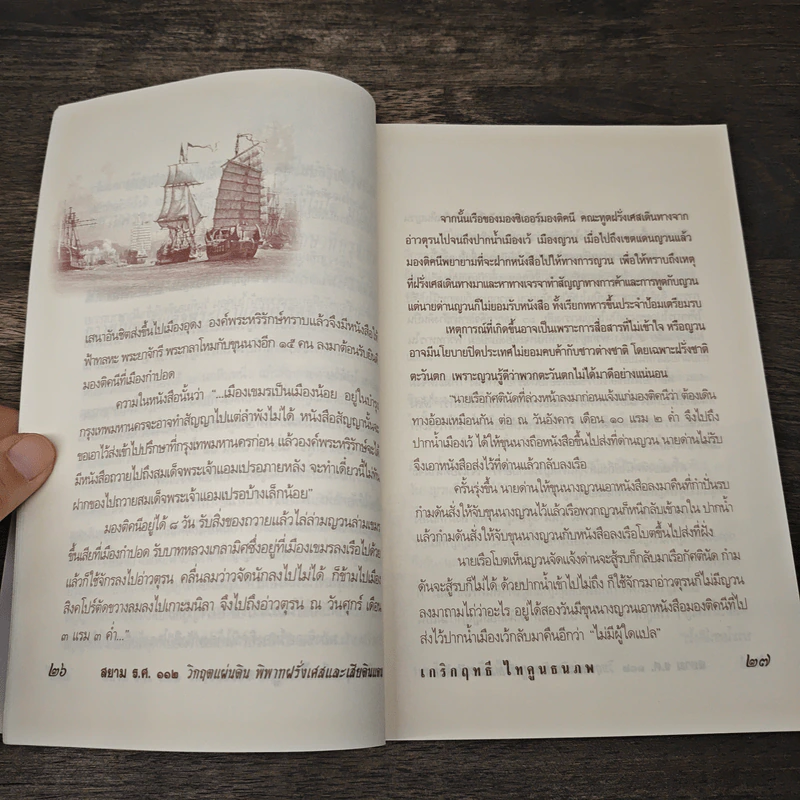 เสนาอันชิตส่งขึ้นไปเมืองอุดง องค์พระหริรักษ์ทราบแล้วจึงมีหนังสือให้
ฟ้าทลหะ พระยาจักรี พระกลาโหมกับขุนนางอีก ๑๕ คน ลงมาต้อนรับ
มองติคนีที่เมืองกำปอด
ความในหนังสือนั้นว่า "...เมืองเขมรเป็นเมืองน้อย อยู่ในบำรุง
กรุงเทพมหานครจะอาจทำสัญญาไปแต่ลำพังไม่ได้ หนังสือสัญญานั้นจะ
ขอเอาไว้ส่งเข้าไปปรึกษาที่กรุงเทพมหานครก่อน แล้วองค์พระหริรักษ์จะได้
มีหนังสือถวายไปถึงสมเด็จพระเจ้าแอมเปรอภายหลัง จะทำเดี๋ยวนี้ไม่ทัน
ฝากของไปถวายสมเด็จพระเจ้าแอมเปรอบ้างเล็กน้อย"
มองติคนีอยู่ได้ ๘ วัน รับสิ่งของถวายแล้วไล่ล่ามญวนล่ามเขมร
ขึ้นเสียที่เมืองกำปอด รับบาทหลวงเกลามิศซึ่งอยู่ที่เมืองเขมรลงเรือไปด้วย
แล้วก็ใช้จักรลงไปอ่าวตุรน คลื่นลมว่าวจัดนักลงไปไม่ได้ ก็ข้ามไปเมือง
สิงคโปร์ตัดขวางลมลงไปเกาะมนิลา จึงไปถึงอ่าวตุรน ณ วันศุกร์ เดือน
๓ แรม ๓ ค่ำ..."
๒๖ สยาม ร.ศ. ๑๑๒ วิกฤตแผ่นดิน พิพาทฝรั่งเศสและเสียดินแดน
จากนั้นเรือของมองซิเออร์มองติคนี คณะทูตฝรั่งเศสเดินทางจาก
อ่าวตุรนไปจนถึงปากน้ำเมืองเว้ เมืองญวน เมื่อไปถึงเขตแดนญวนแล้ว
มองติคนีพยายามที่จะฝากหนังสือไปให้ทางการญวน เพื่อให้ทราบถึงเหตุ
ที่ฝรั่งเศสเดินทางมาและหาทางเจรจาทำสัญญาทางการค้าและการทูตกับญวน
แต่นายด่านญวนก็ไม่ยอมรับหนังสือ ทั้งเรียกทหารขึ้นประจำป้อมเตรียมรบ
เหตุการณ์ที่เกิดขึ้นอาจเป็นเพราะการสื่อสารที่ไม่เข้าใจ หรือญวน
อาจมีนโยบายปิดประเทศไม่ยอมคบค้ากับชาวต่างชาติ โดยเฉพาะฝรั่งชาติ
ตะวันตก เพราะญวนรู้ดีว่าพวกตะวันตกไม่ได้มาดีอย่างแน่นอน
"นายเรือกัตตินัดที่ล่วงหน้าลงมาก่อนแจ้งแก่มองติคนีว่า ต้องเดิน
ทางอ้อมเหมือนกัน ต่อ ณ วันอังคาร เดือน ๑๐ แรม ๒ ค่ำ จึงไปถึง
ปากน้ำเมืองเว้ ได้ให้ขุนนางถือหนังสือขึ้นไปส่งที่ด่านญวน นายด่านไม่รับ
จึงเอาหนังสือส่งไว้ที่ด่านแล้วกลับลงเรือ
ครั้นรุ่งขึ้น นายด่านให้ขุนนางญวนเอาหนังสือลงมาคืนที่กำปั่นรบ
กำมดันสั่งให้จับขุนนางญวนไว้แล้วเรือพวกญวนก็หนีกลับเข้ามาใน ปากน้ำ
แล้วกำมดันสั่งให้จับขุนนางญวนกับหนังสือลงเรือโบตขึ้นไปส่งที่ฝั่ง
นายเรือโบตเห็นญวนจัดแจงด่านจะสู้รบก็กลับมาเรือกัตตินัด กำม
ดันจะสู้รบก็ไม่ได้ ด้วยปากน้ำเข้าไปไม่ถึง ก็ใช้จักรมาอ่าวตุรนก็ไม่มีญวน
ลงมาถามไถ่ว่าอะไร อยู่ได้สองวันมีขุนนางญวนเอาหนังสือมองติคนีที่ไป
ส่งไว้ปากน้ำเมืองเว้กลับมาคืนอีกว่า "ไม่มีผู้ใดแปล"
เกริกฤทธิ์ ไทคูนธนภพ ๒๗